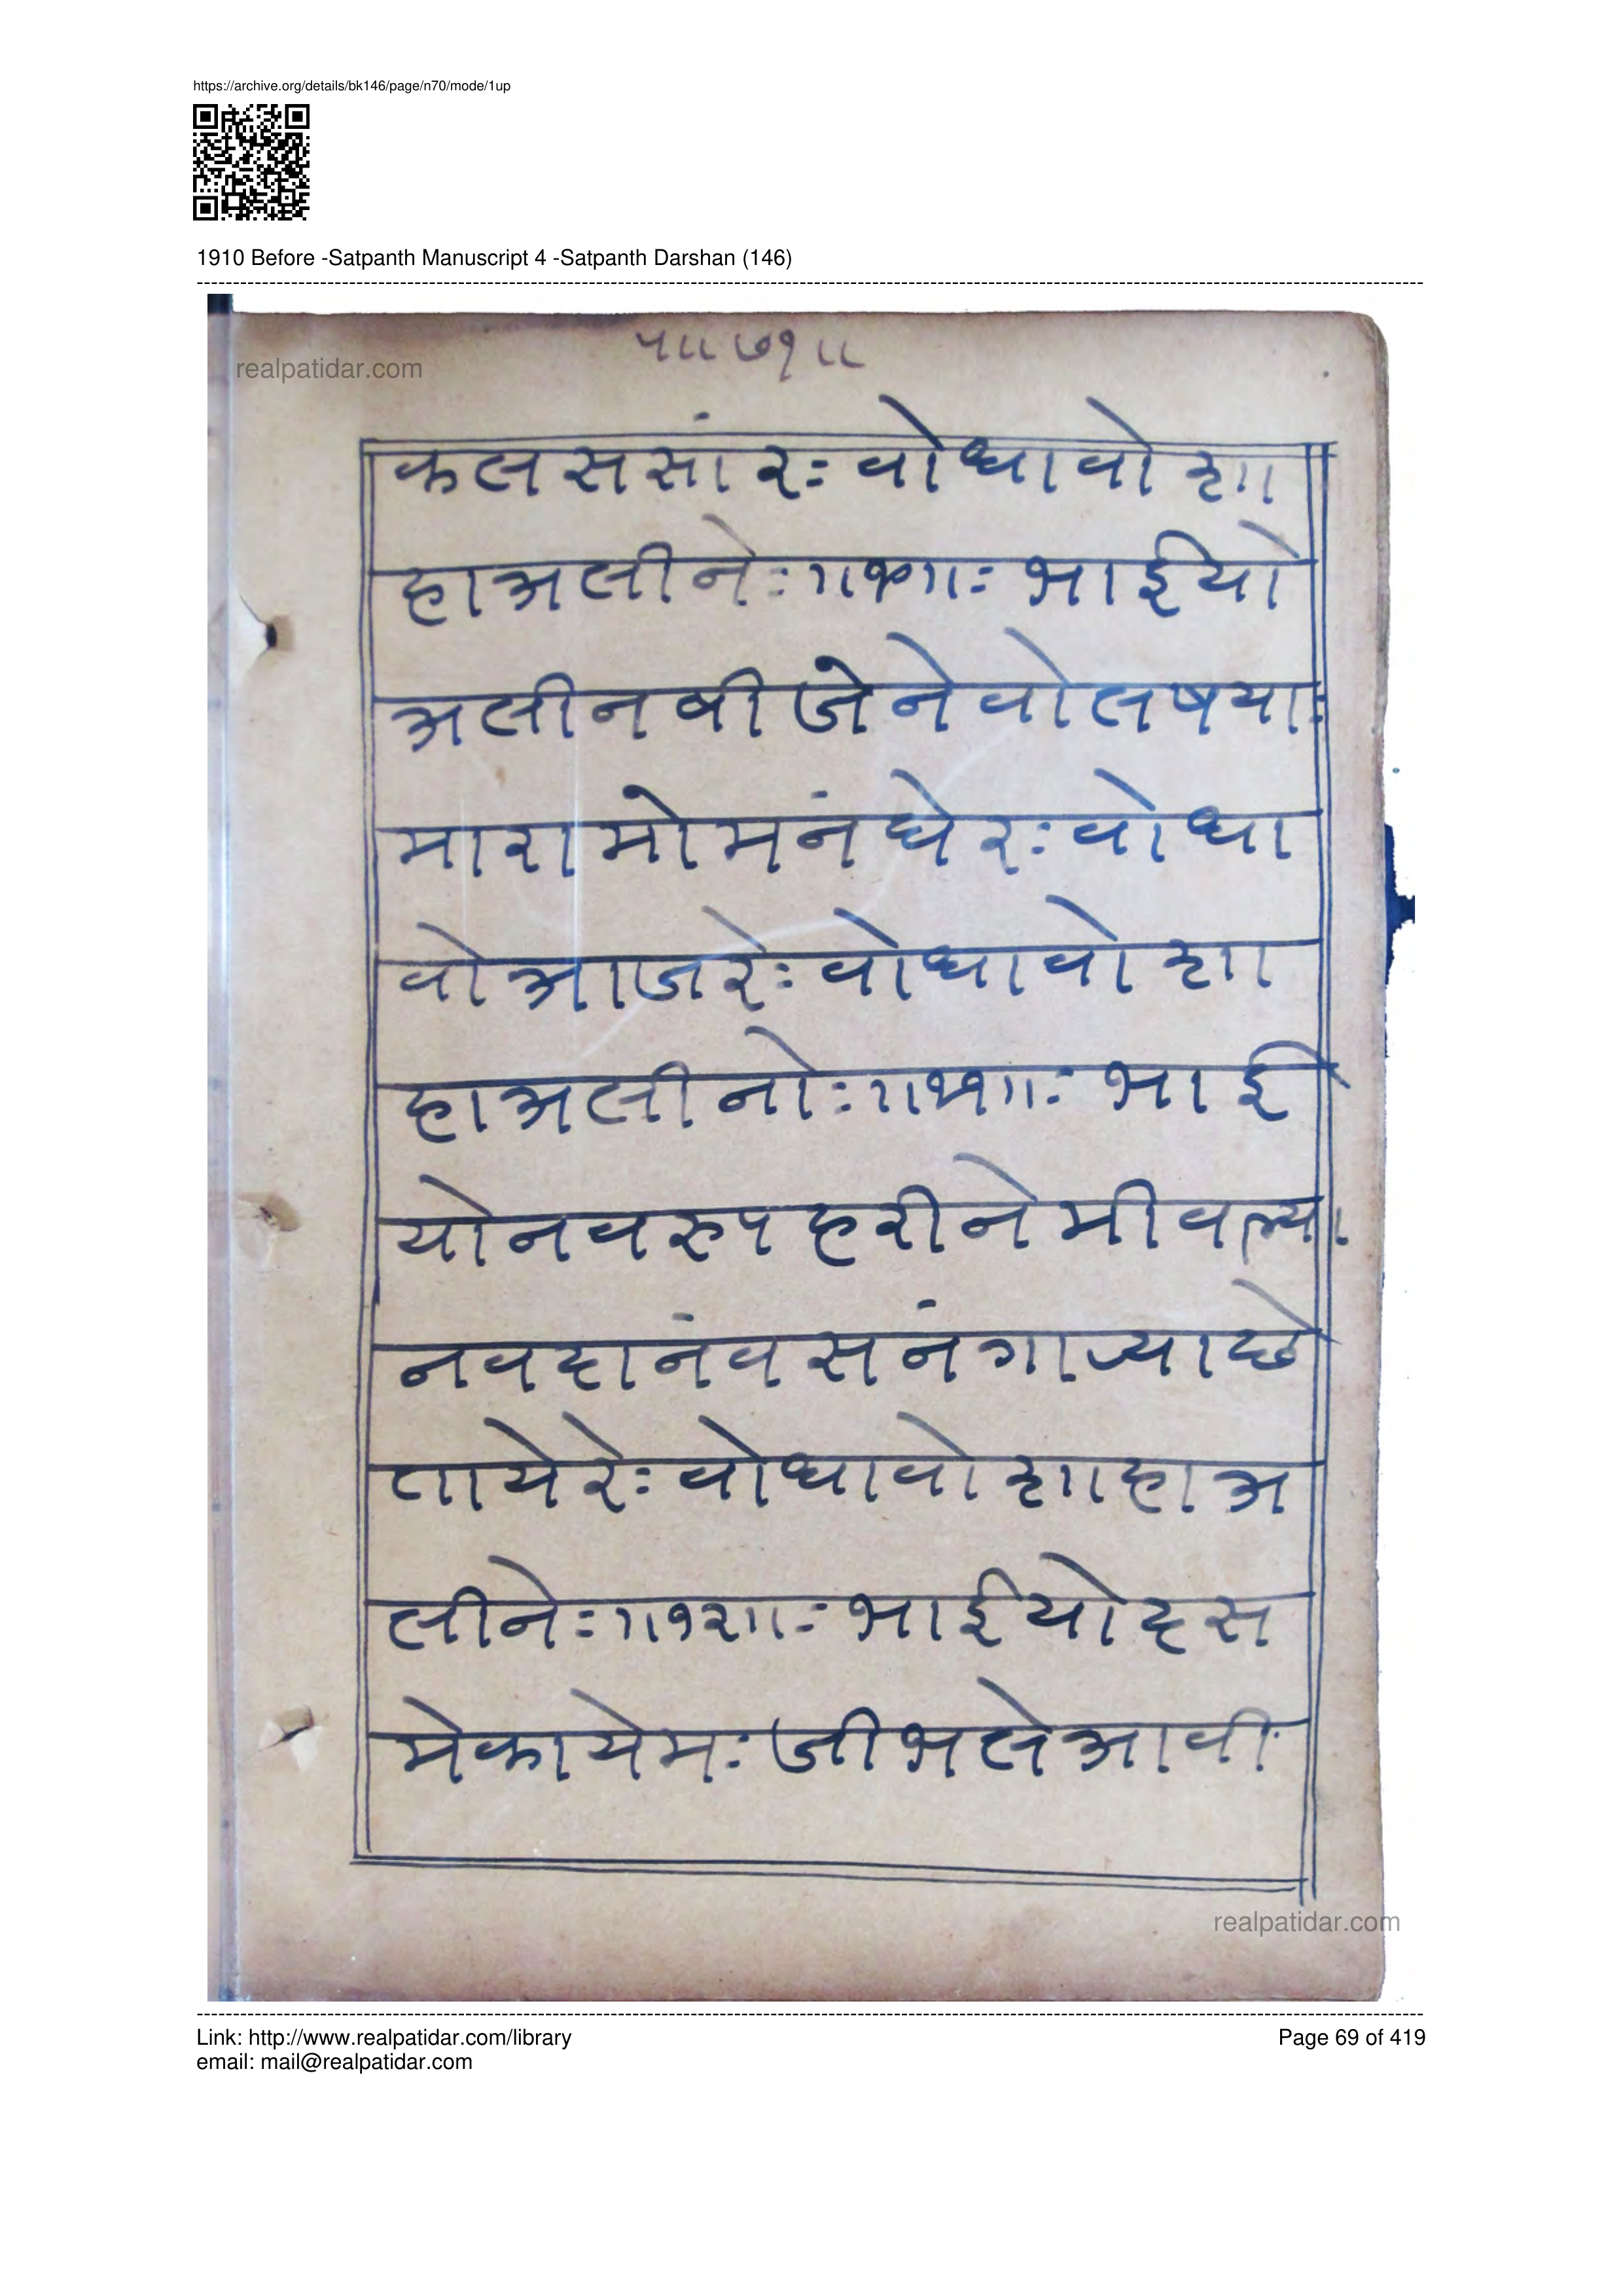 https://archive.org/details/bk146/page/n70/mode/1up
1910 Before -Satpanth Manuscript 4 -Satpanth Darshan (146)
realpatidar.com
५॥ ७१॥
कलससांरः वोधावो शा
हाअलीनेः॥१०॥ः भाईयो
अलीनबीजेनेवोलषयाः
मारामोमनंघेरः वोधा
वोआजरेः वोधावो शा
हाअलीनोः॥११॥ः भाई
योनवरुपहरीनेमीवल्या
नवदानंवसनंगाज्याछे
तायेरेः वोधावो शाहाअ
लीनेः॥१२॥ः भाईयोदस
मेकायेमः जीभलेआवी
realpatidar.com
Link: http://www.realpatidar.com/library
Page 69 of 419
email: mail@realpatidar.com